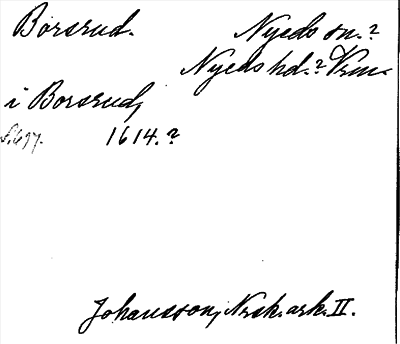 Borsrud. Nyeds sn.?
Nyeds hd.? Vrml.
i Borsrud,
1614.?
Johansson, Nrsk. ark. II.